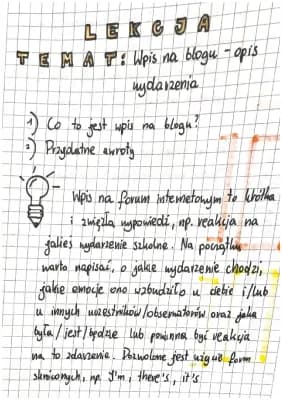 LEKCJA
TEMAT: Wpis na blogu - opis
wydarzenia
1) Co to jest wpis na blogu?
2) Przydatne zwroty
- Wpis na forum internetowym to krótka
i zwięzła wypowiedź, np. reakcja na
jakieś wydarzenie szkolne. Na początku
warto napisać, o jakie wydarzenie chodzi,
jakie emocje ono wzbudziło u ciebie i/lub
u innych uczestników/obserwatorów oraz jaka
była/jest/będzie lub powinna być reakcja
na to zdarzenie. Dozwolone jest użycie form
skróconych, np. I'm, there's, it's